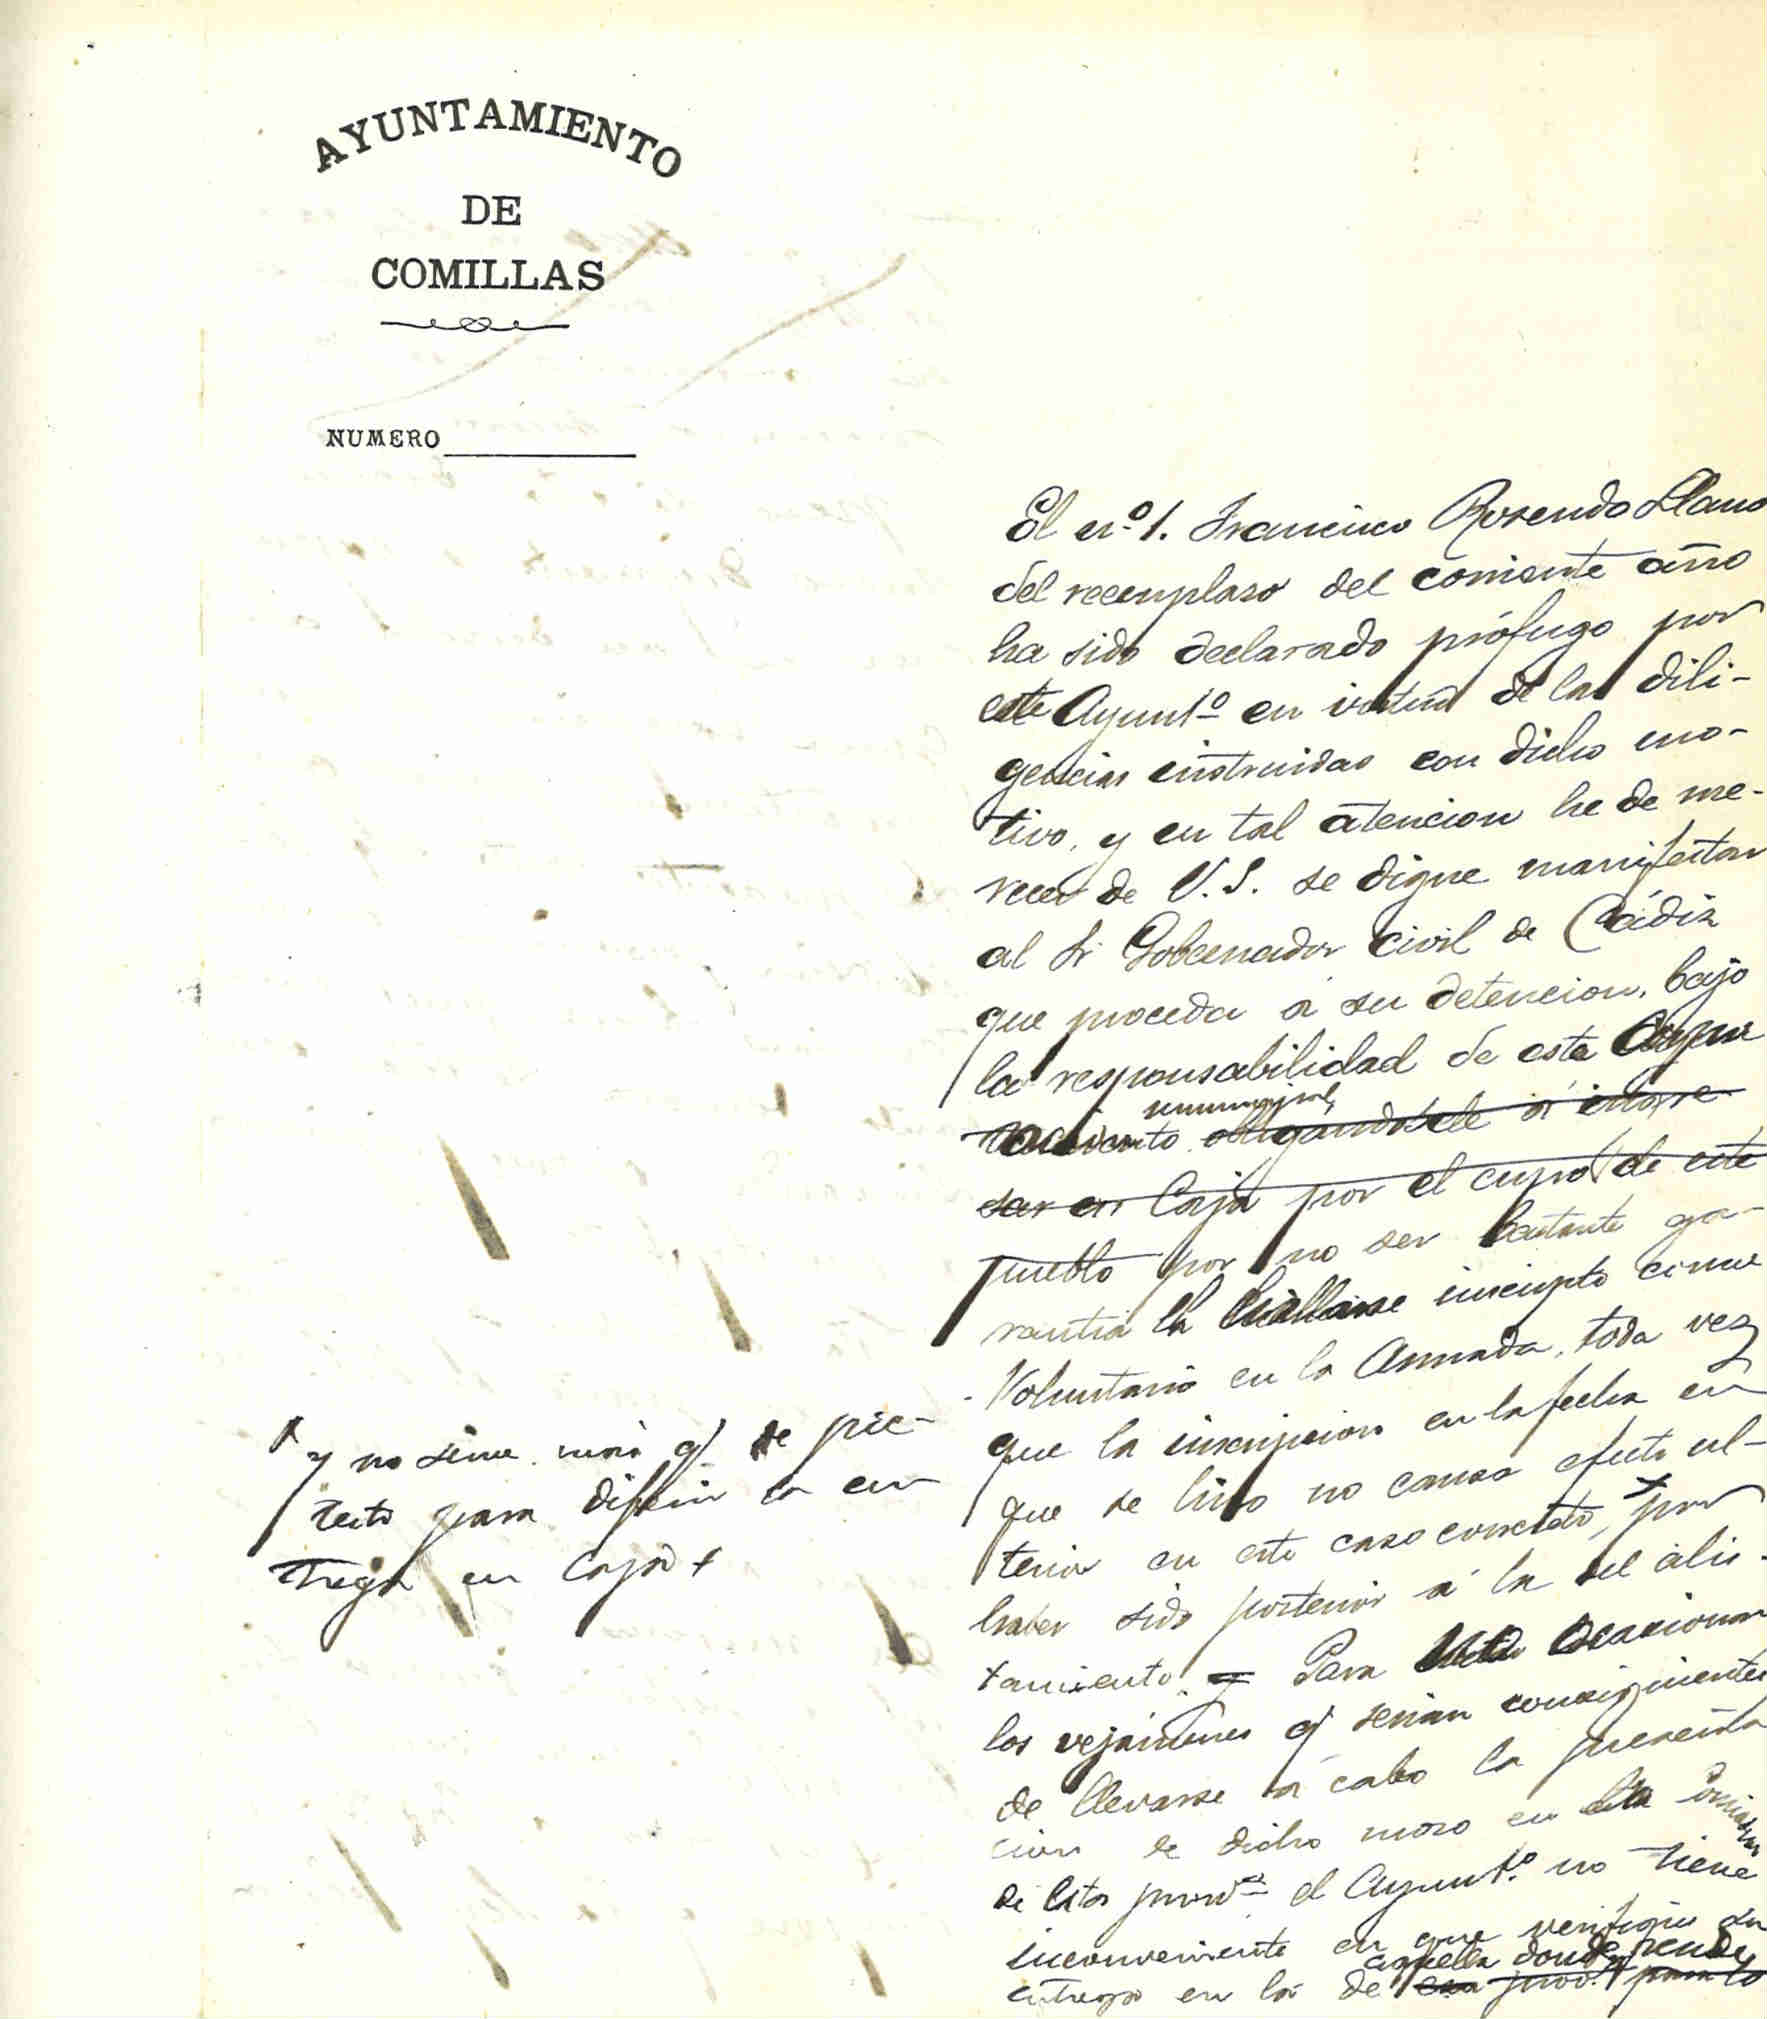 AYUNTAMIENTO
DE
COMILLAS
NUMERO
El nº 1. Francisco Rosendo Llano
del reemplaso del corriente año
ha sido declarado prófugo por
este Ayuntº en virtud de las dili-
gencias instruidas con dicho mo-
tivo, y en tal atencion he de me-
recer de V.S. se digne manifestar
al Sr Gobernador civil de Cádiz
que proceda á su detencion, bajo
la responsabilidad de este Ayun
tamiento obligandosele á
en Caja por el cupo de este
pueblo por no ser bastante ga-
rantia el hallarse inscripto como
Voluntario en la Armada, toda vez
que la inscripcion en la fecha en
que se hizo no causa efecto ul-
terior en este caso concreto, + por
haber sido posterior á la del alis-
tamiento. y Para
los vejámenes q' serian consiguientes
de llevarse á cabo la presenta
cion de dicho mozo en esta
de esta provª el Ayuntº. no tiene
inconveniente en que verifique su
aquella donde reside
entrega en la de esa prov. para lo
y no sirve mas q' de pre-
testo para diferir la en
trega en Caja +